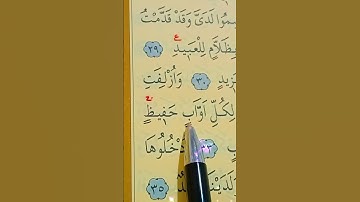 صِمُوا لَدَيَّ وَقَدْ قَدَّمْتُ
بِظَلَّامٍ لِلْعَبِيدِ ﴿٢٩﴾
زِيدٍ ﴿٣٠﴾ وَاُزْلِفَتِ
لِكُلِّ اَوَّابٍ حَفِيظٍ
بٍ ﴿٣٣﴾ اُدْخُلُوهَا
وَلَدَيْنَا ﴿٣٥﴾